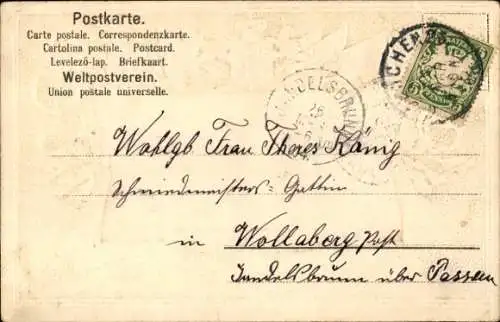 Postkarte.
Carte postale. Correspondenzkarte.
Cartolina postale. Postcard.
Levelező-lap. Briefkaart.
Weltpostverein.
Union postale universelle.
BAYERN
5 PFENNIG 5
Wohlgb Frau Theres König
Schmiedmeisters-Gattin
in Wollaberg Post
Jandelsbrunn über Passau